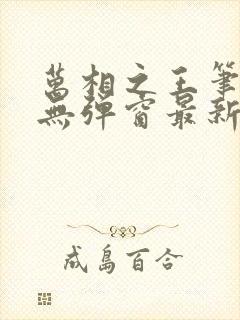 萬相之王筆
無彈窗最新
成島百合